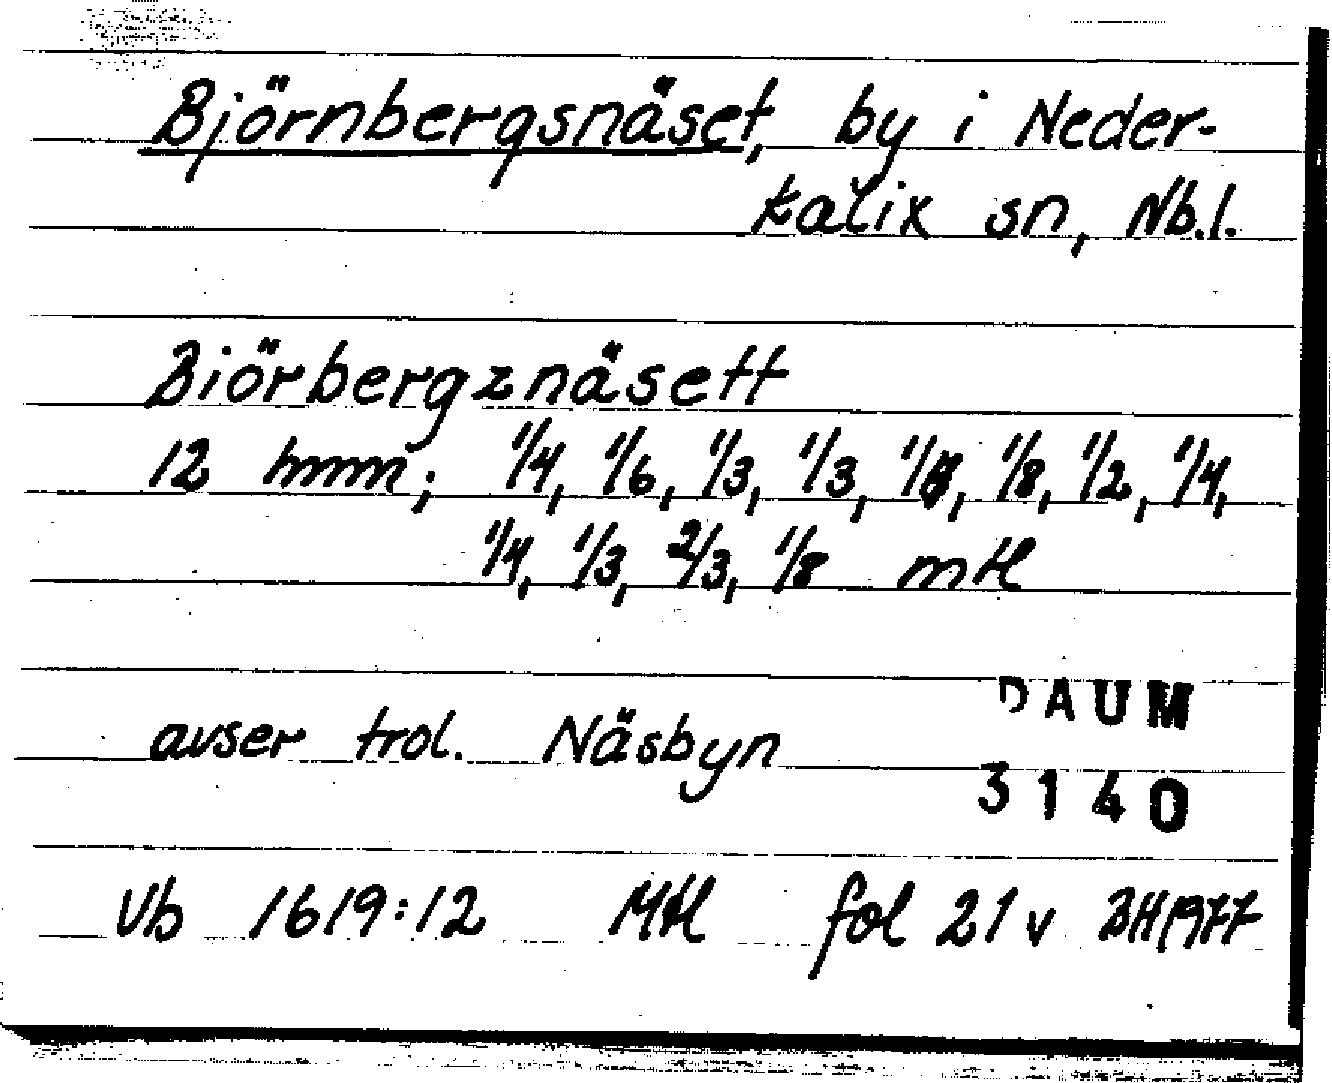 Björnbergsnäset, by i Neder-
kalix sn, Nb.l.
Biörbergznäsett
12 hmm; 1/4, 1/6, 1/3, 1/3, 1/8, 1/8, 1/2, 1/4,
1/4, 1/3, 2/3, 1/8 mtl
DAUM
avser trol. Näsbyn
3140
Vb 1619:12 Mtl fol 21 v BH1977